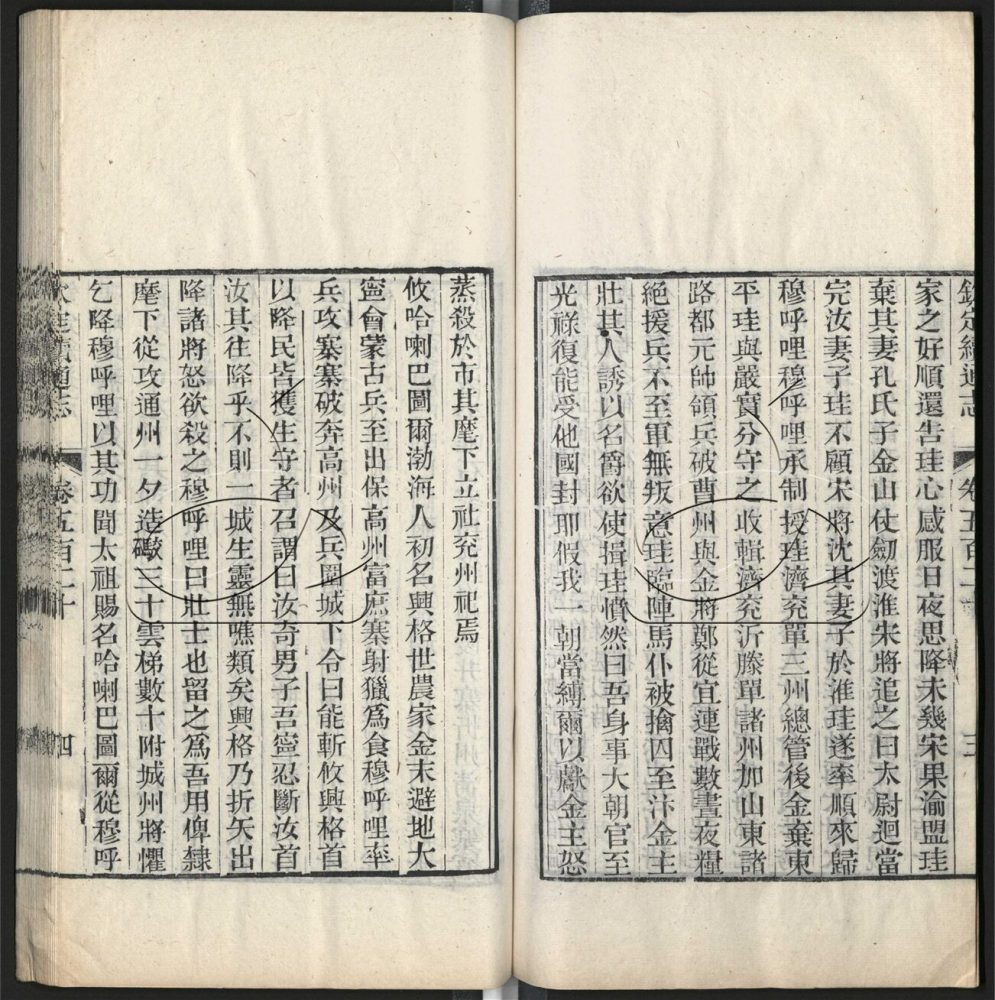 欽定續通志 卷五百二十 三
家之好順還告珪心感服日夜思降未幾宋果渝盟珪
棄其妻孔氏子金山仗劒渡淮朱將追之曰太尉迴當
完汝妻子珪不顧宋將沈其妻子於淮珪遂率順來歸
穆呼哩穆呼哩承制授珪濟兖單三州總管後金棄東
平珪與嚴實分守之收輯濟兖沂滕單諸州加山東諸
路都元帥領兵破曹州與金將鄭從宜連戰數晝夜糧
絶援兵不至軍無叛意珪臨陣馬仆被擒囚至汴金主
壯其人誘以名爵欲使揖珪憤然曰吾身事大朝官至
光祿復能受他國封耶假我一朝當縛爾以獻金主怒
蒸殺於市其麾下立社兖州祀焉
攸哈喇巴圖爾渤海人初名興格世農家金末避地大
寧會蒙古兵至出保高州富庶寨射獵爲食穆呼哩率
兵攻寨寨破奔高州及兵圍城下令曰能斬攸興格首
以降民皆獲生守者召謂曰汝奇男子吾寧忍斷汝首
汝其往降乎不則一城生靈無噍類矣興格乃折矢出
降諸將怒欲殺之穆呼哩曰壯士也留之爲吾用俾隸
麾下從攻通州一夕造礮三十雲梯數十附城州將懼
乞降穆呼哩以其功聞太祖賜名哈喇巴圖爾從穆呼
欽定續通志 卷五百二十 四